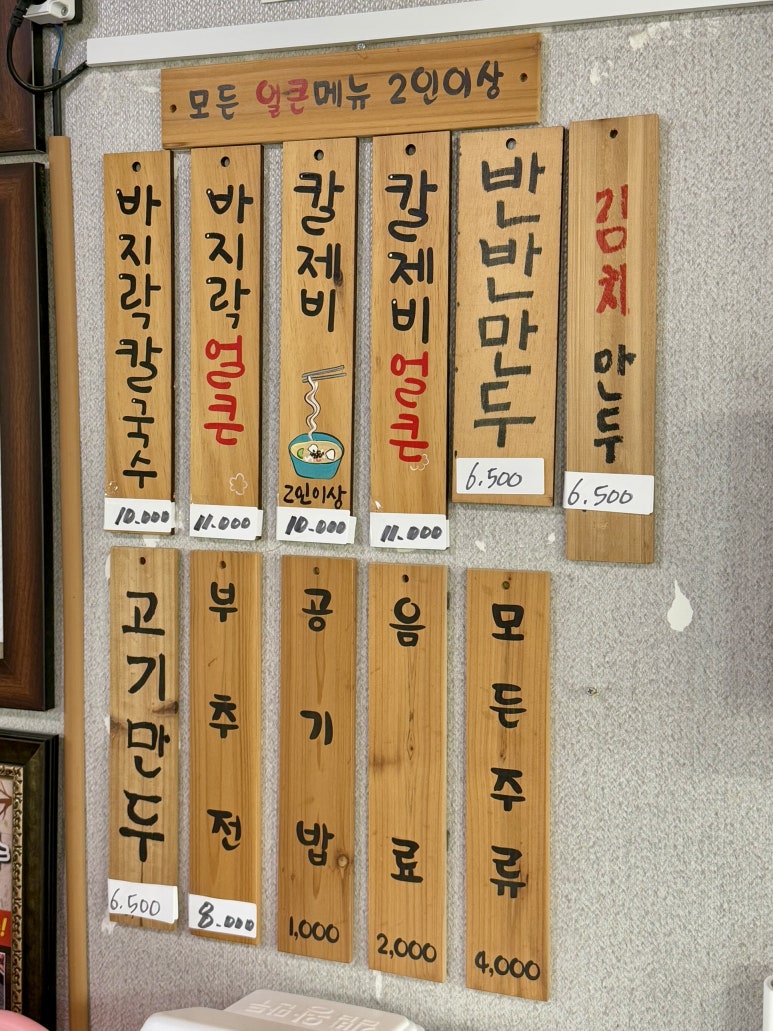 모든 얼큰메뉴 2인이상
바지락칼국수
10.000
바지락 얼큰
11.000
칼제비
2인이상
10.000
칼제비 얼큰
11.000
반반만두
6.500
김치 만두
6.500
고기만두
6.500
부추전
8.000
공기밥
1,000
음료
2,000
모든주류
4,000